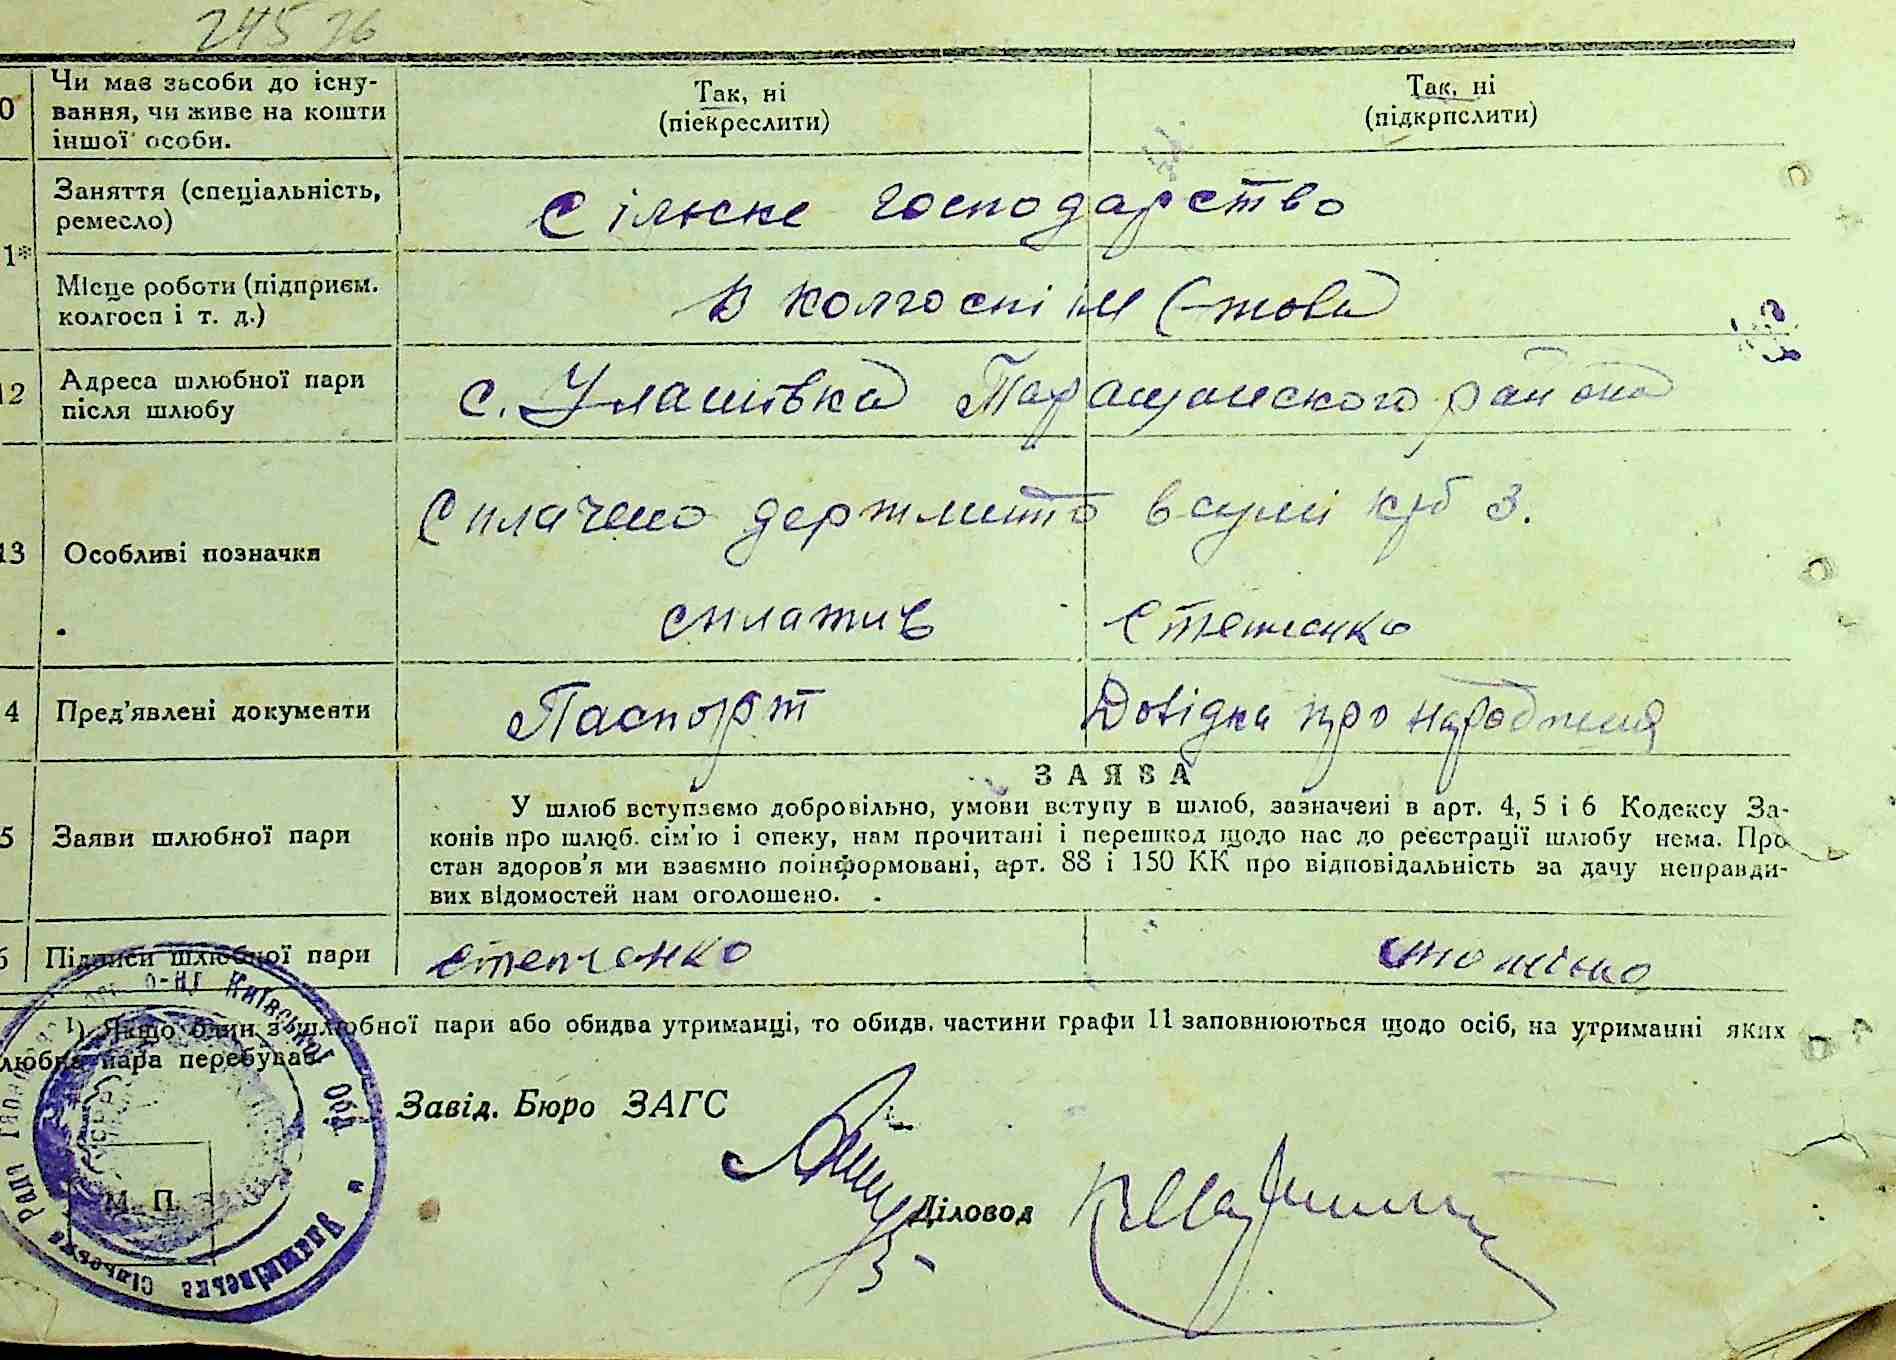 24576
0
Чи має засоби до існу-
вання, чи живе на кошти
іншої особи.
Так, ні
(піекреслити)
Так, ні
(підкрпслити)
1*
Заняття (спеціальність,
ремесло)
Сільске господарство
Місце роботи (підприєм.
колгосп і т. д.)
В колгоспі ім
12
Адреса шлюбної пари
після шлюбу
с. Улашівка Таращанского района
13
Особливі позначки
Сплачено держмито в сумі крб 3.
сплатив Степченко
4
Пред’явлені документи
Паспорт
Довідка про народження
ЗАЯВА
5
Заяви шлюбної пари
У шлюб вступаємо добровільно, умови вступу в шлюб, зазначені в арт. 4, 5 і 6 Кодексу За-
конів про шлюб. сім’ю і опеку, нам прочитані і перешкод щодо нас до реєстрації шлюбу нема. Про
стан здоров’я ми взаємно поінформовані, арт. 88 і 150 КК про відповідальність за дачу неправди-
вих відомостей нам оголошено.
6
Підписи шлюбної пари
Степченко
1) Якщо один з шлюбної пари або обидва утриманці, то обидв. частини графи 11 заповнюються щодо осіб, на утриманні яких
любна пара перебуває.
Завід. Бюро ЗАГС
Діловод
М. П.
р-ну Київської Обл.
Улашівська Сільська Рада